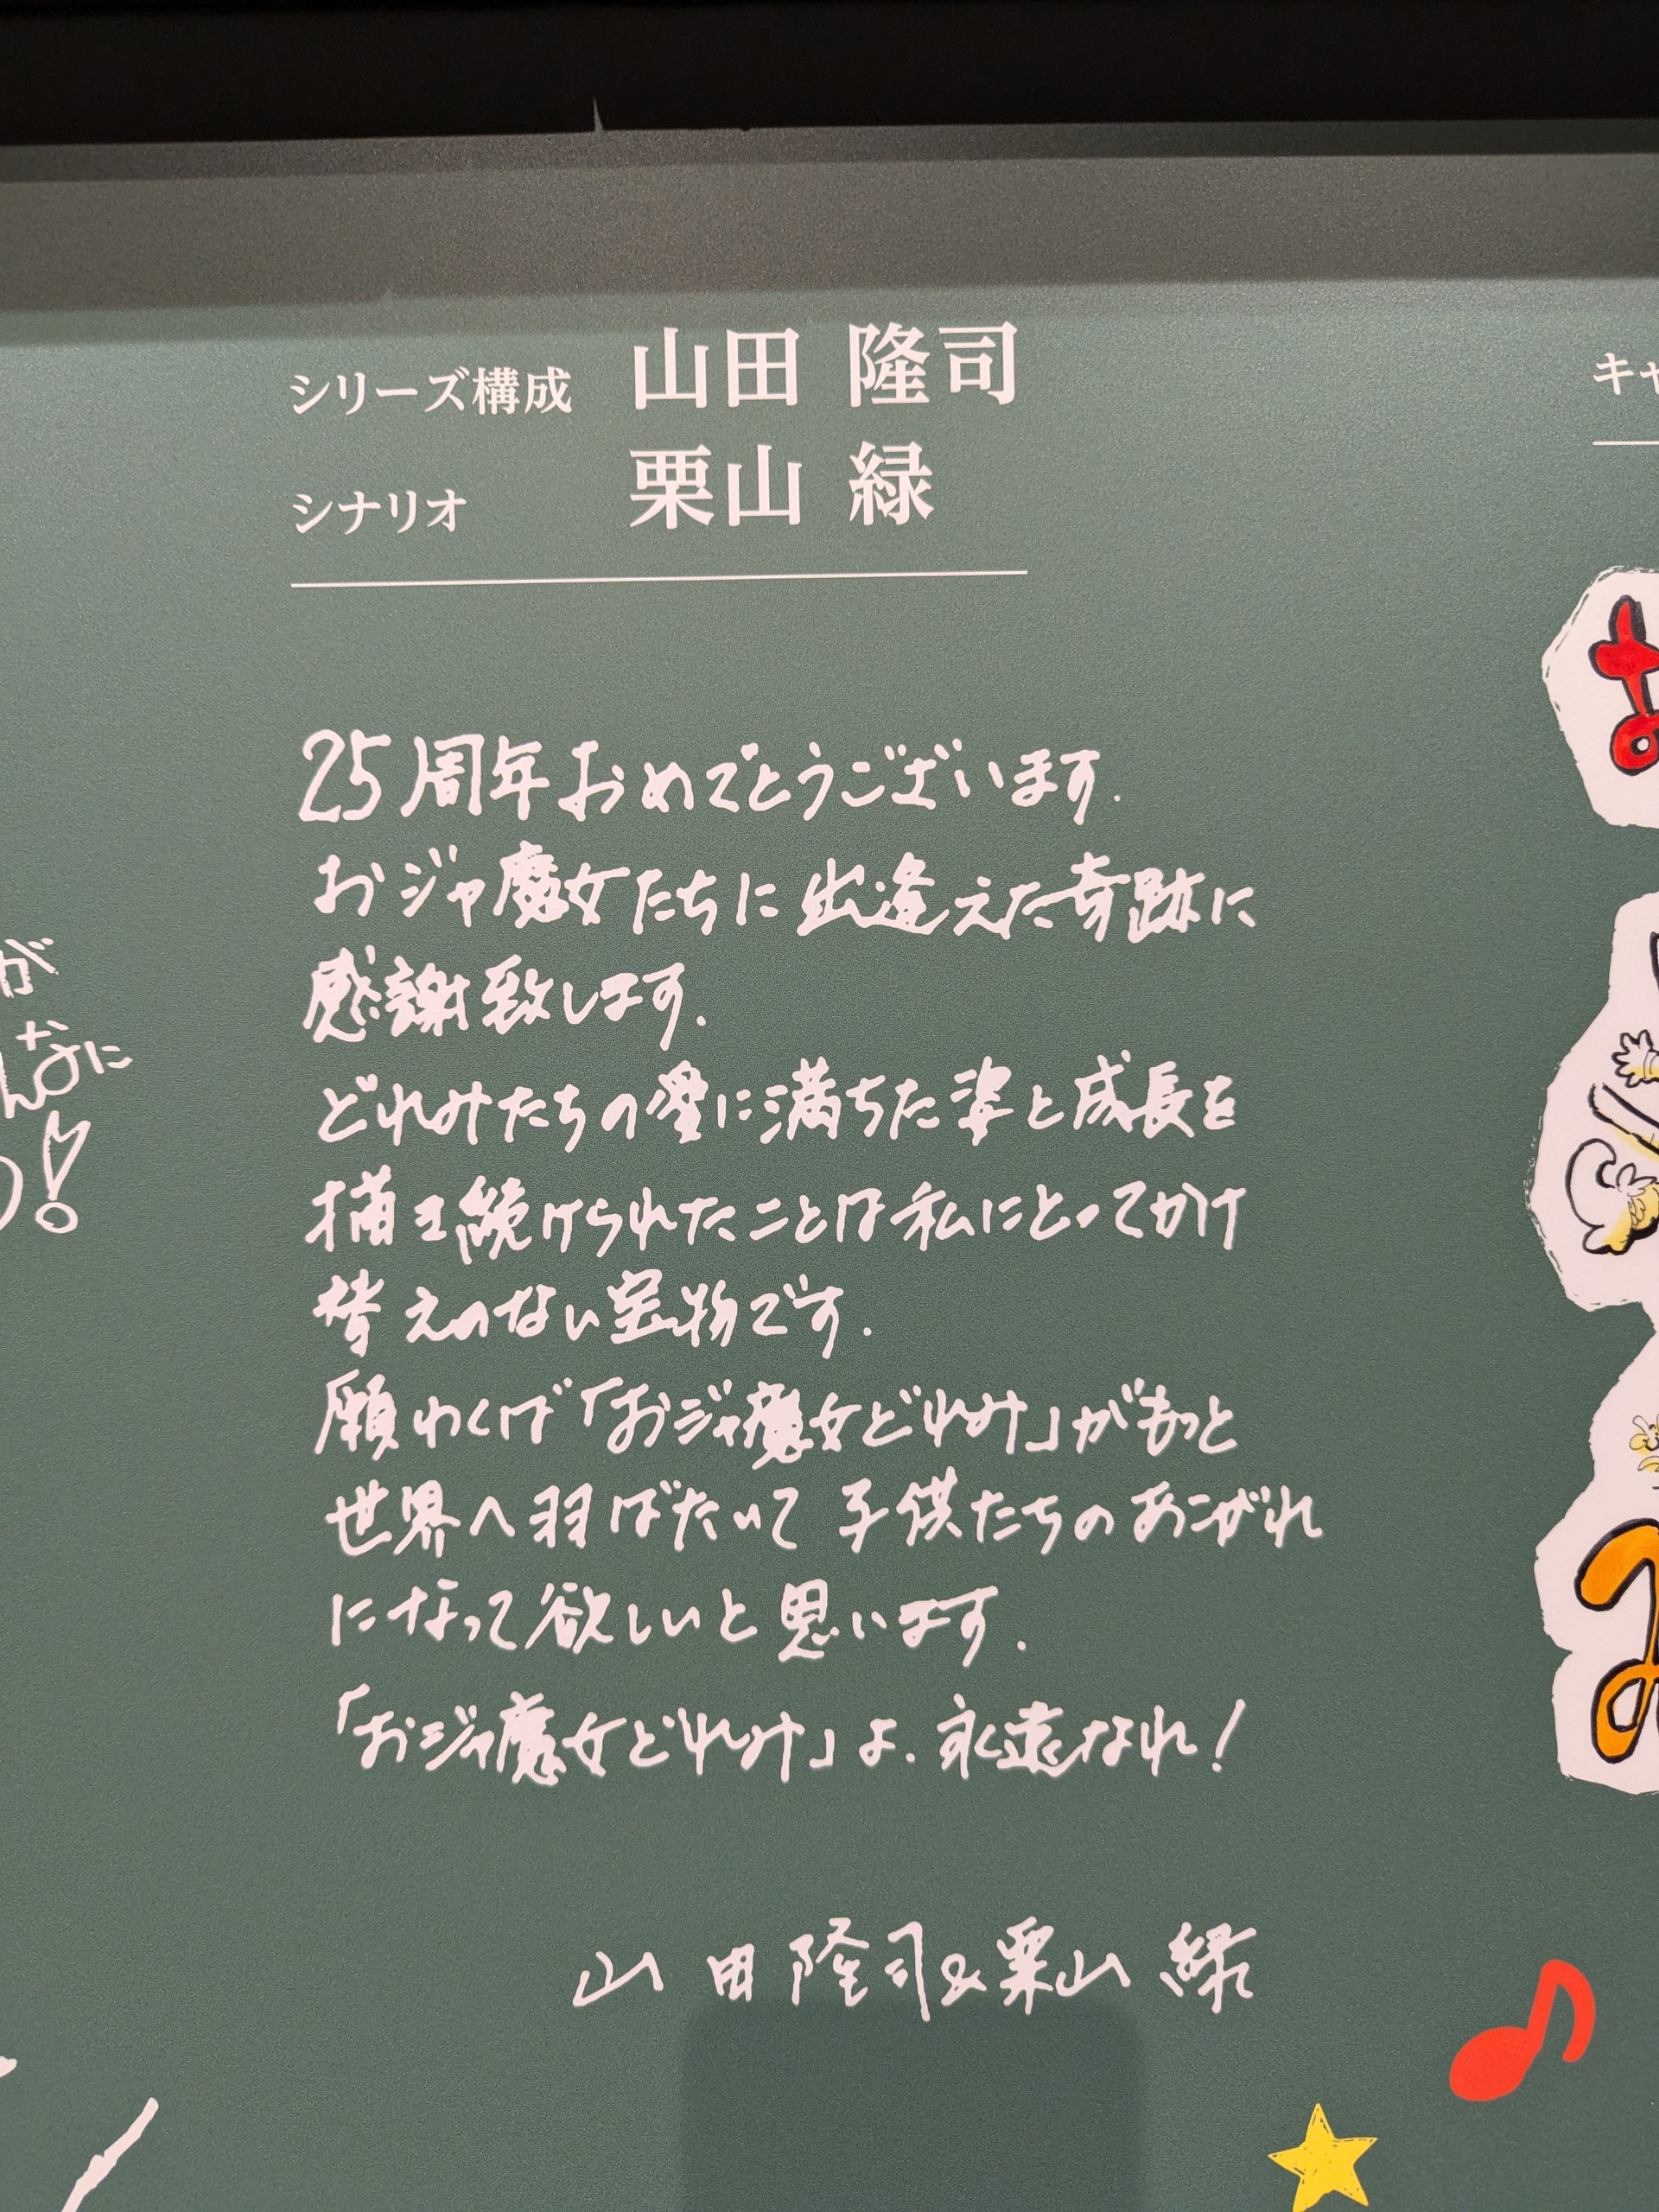 シリーズ構成 山田 隆司
シナリオ 栗山 緑
25周年おめでとうございます.
おジャ魔女たちに出逢えた奇跡に
感謝致します.
どれみたちの愛に満ちた姿と成長を
描き続けられたことは私にとってかけ
替えのない宝物です.
願わくば「おジャ魔女どれみ」がもっと
世界へ羽ばたいて子供たちのあこがれ
になって欲しいと思います.
「おジャ魔女どれみ」よ.永遠なれ!
山田隆司&栗山 緑
が
んなに
!
キャ
お